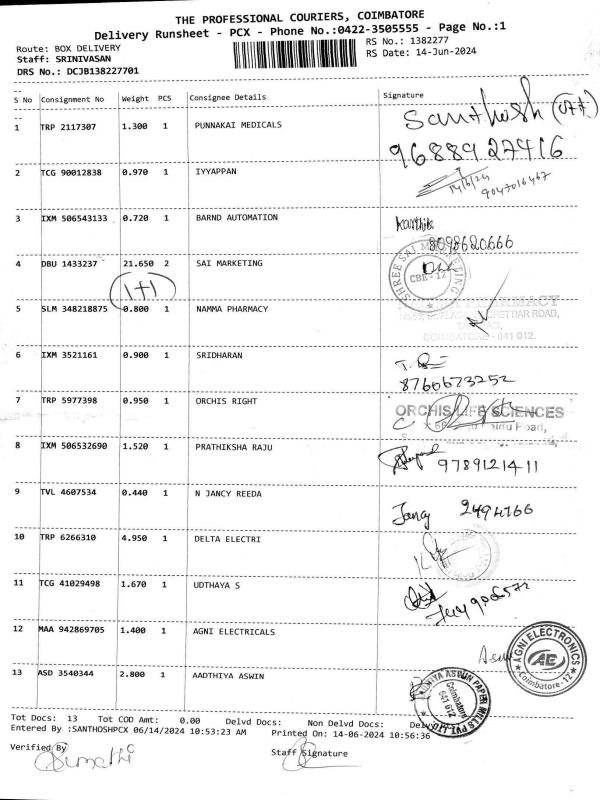 THE PROFESSIONAL COURIERS, COIMBATORE
Delivery Runsheet - PCX - Phone No.:0422-3505555 - Page No.:1
Route: BOX DELIVERY RS No.: 1382277
Staff: SRINIVASAN RS Date: 14-Jun-2024
DRS No.: DCJB138227701
S No Consignment No Weight PCS Consignee Details Signature
1 TRP 2117307 1.300 1 PUNNAKAI MEDICALS Santhosh
9688927416
2 TCG 90012838 0.970 1 IYYAPPAN 14/6/24
9047016467
3 IXM 506543133 0.720 1 BARND AUTOMATION
8098620666
4 DBU 1433237 21.650 2 SAI MARKETING SHREE SAI MARKETING
CBE-12
1+1
5 SLM 348218875 0.800 1 NAMMA PHARMACY PHARMACY
CHETTIAR ROAD,
COIMBATORE - 641 012.
6 IXM 3521161 0.900 1 SRIDHARAN
8760673252
7 TRP 5977398 0.950 1 ORCHIS RIGHT ORCHIS LIFE SCIENCES
Road,
8 IXM 506532690 1.520 1 PRATHIKSHA RAJU 9789121411
9 TVL 4607534 0.440 1 N JANCY REEDA Jancy 2494766
10 TRP 6266310 4.950 1 DELTA ELECTRI
11 TCG 41029498 1.670 1 UDTHAYA S
12 MAA 942869705 1.400 1 AGNI ELECTRICALS AGNI ELECTRONICS
AE
Coimbatore-12
13 ASD 3540344 2.800 1 AADTHIYA ASWIN ASWIN PAPER MILLS PVT. LTD.
Coimbatore
641 012
Tot Docs: 13 Tot COD Amt: 0.00 Delvd Docs: Non Delvd Docs:
Entered By :SANTHOSHPCX 06/14/2024 10:53:23 AM Printed On: 14-06-2024 10:56:36
Verified By Staff Signature
Sumathi